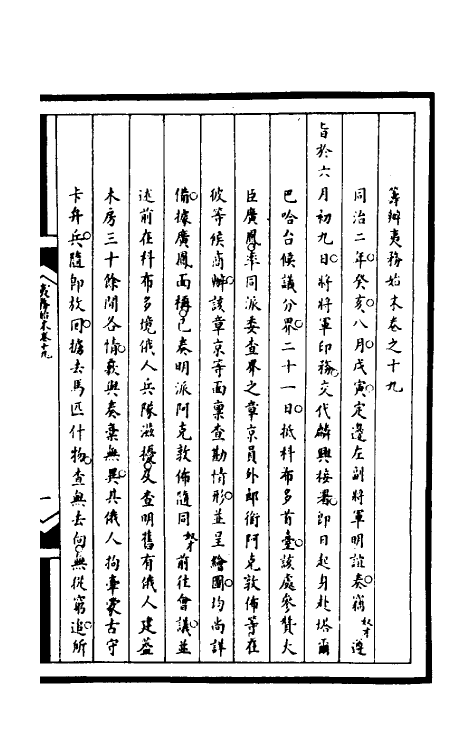 籌辦夷務始末卷之十九
同治二年癸亥八月戊寅定邊左副將軍明誼奏竊奴才遵
旨於六月初九日將將軍印務交代麟興接署即日起身赴塔爾
巴哈台候議分界二十一日抵科布多首臺該處參贊大
臣廣鳳率同派委查界之章京員外郎銜阿克敦佈等在
彼等候商辦該章京等面稟查勘情形並呈繪圖均尚詳
備據廣鳳面稱已奏明派阿克敦佈隨同奴才前往會議並
述前在科布多境俄人兵隊滋擾及查明舊有俄人建蓋
木房三十餘間各情覈與奏案無異其俄人拘牽蒙古守
卡弁兵隨即放回擄去馬匹什物查無去向無從窮追所
夷務始末卷十九
一